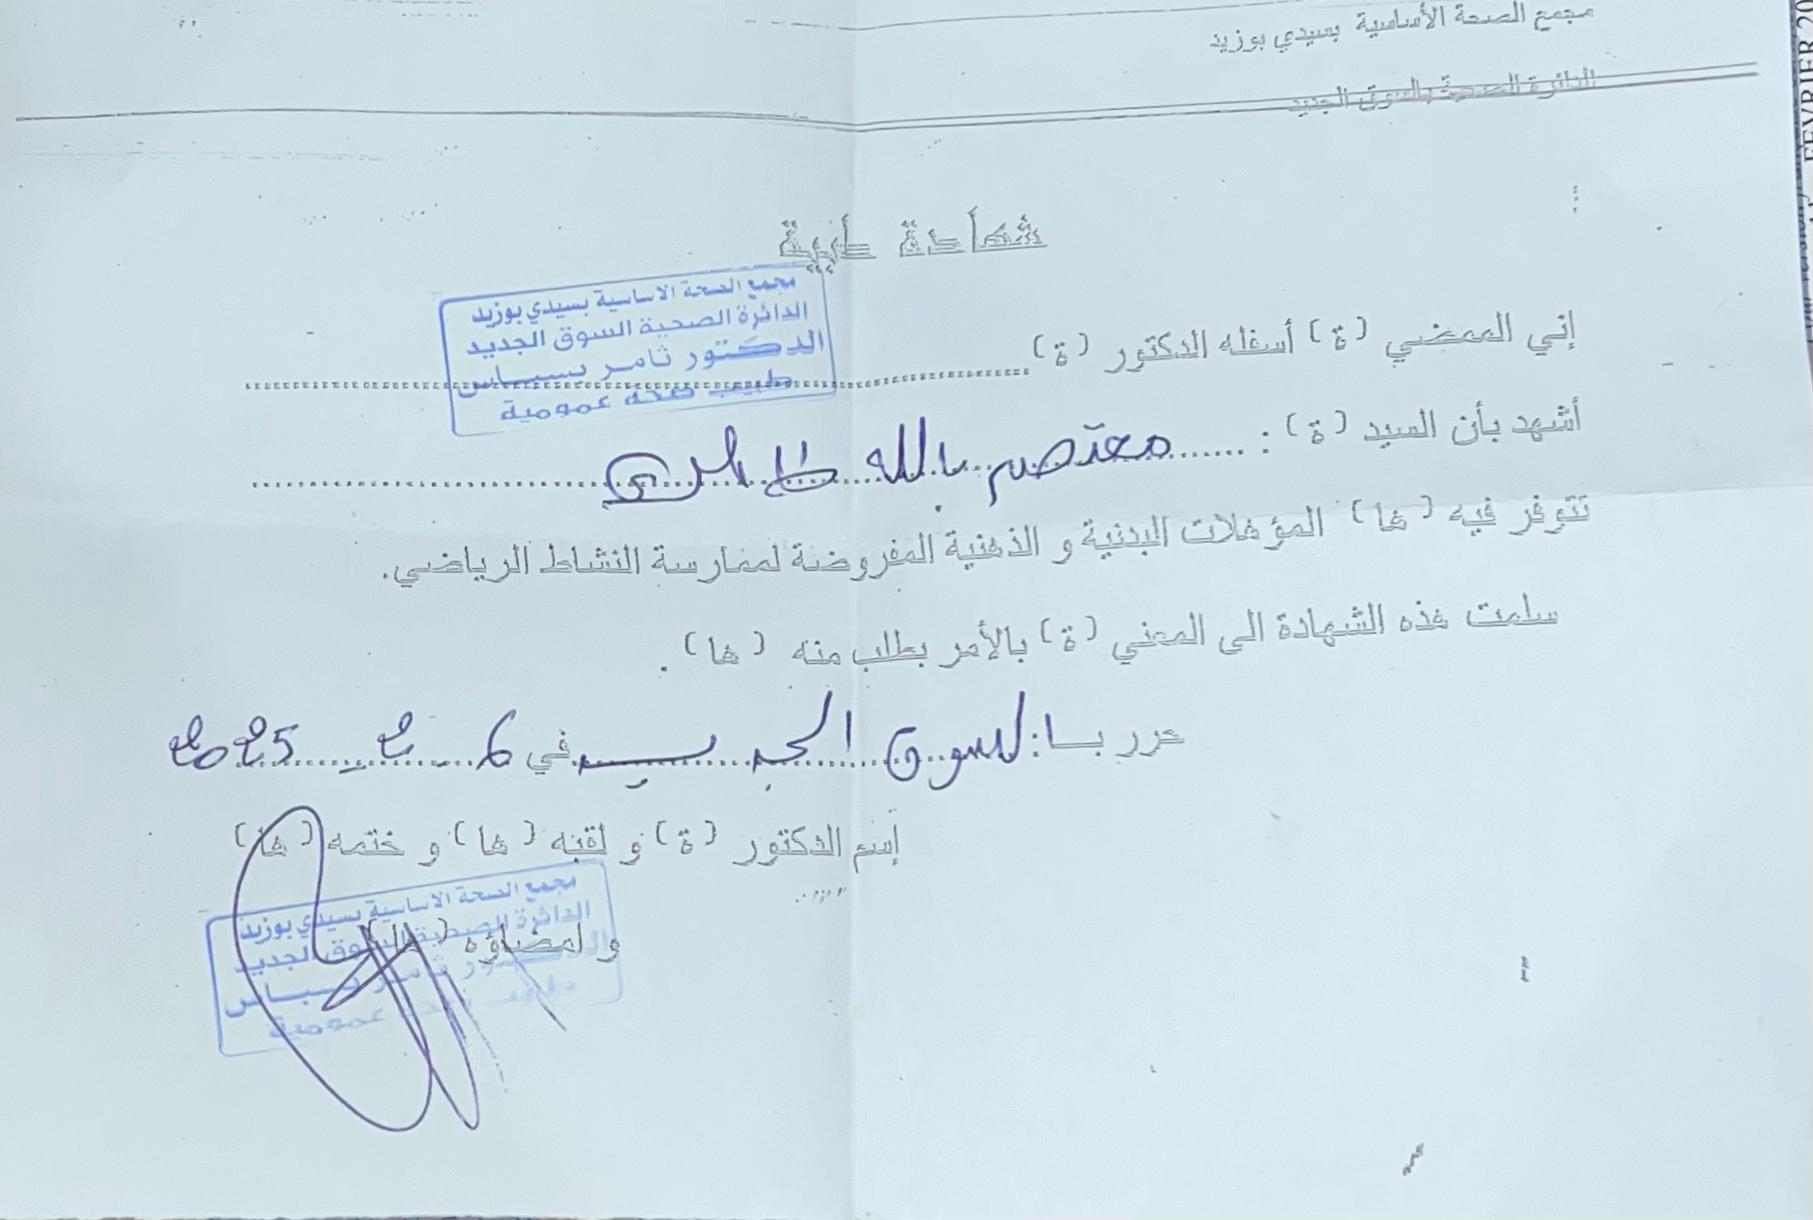 مجمع الصحة الأساسية بسيدي بوزيد
الدائرة الصحية بالسوق الجديد
FEVRIER 20
شهادة طبية
مجمع الصحة الاساسية بسيدي بوزيد
الدائرة الصحية السوق الجديد
الدكتور ثامر بسباس
طبيب صحة عمومية
إني الممضي (ة) أسفله الدكتور (ة)
أشهد بأن السيد (ة) : معتصم بالله طاهري
تتوفر فيه (ها) المؤهلات البدنية و الذهنية المفروضة لممارسة النشاط الرياضي.
سلمت هذه الشهادة الى المعني (ة) بالأمر بطلب منه (ها) .
حرر بـا: لسوق الجديد في 6 - 2 - 2025
إسم الدكتور (ة) و لقبه (ها) و ختمه (ها)
و امضاؤه (ها)
مجمع الصحة الاساسية بسيدي بوزيد
الدائرة الصحية السوق الجديد
الدكتور ثامر بسباس
طبيب صحة عمومية